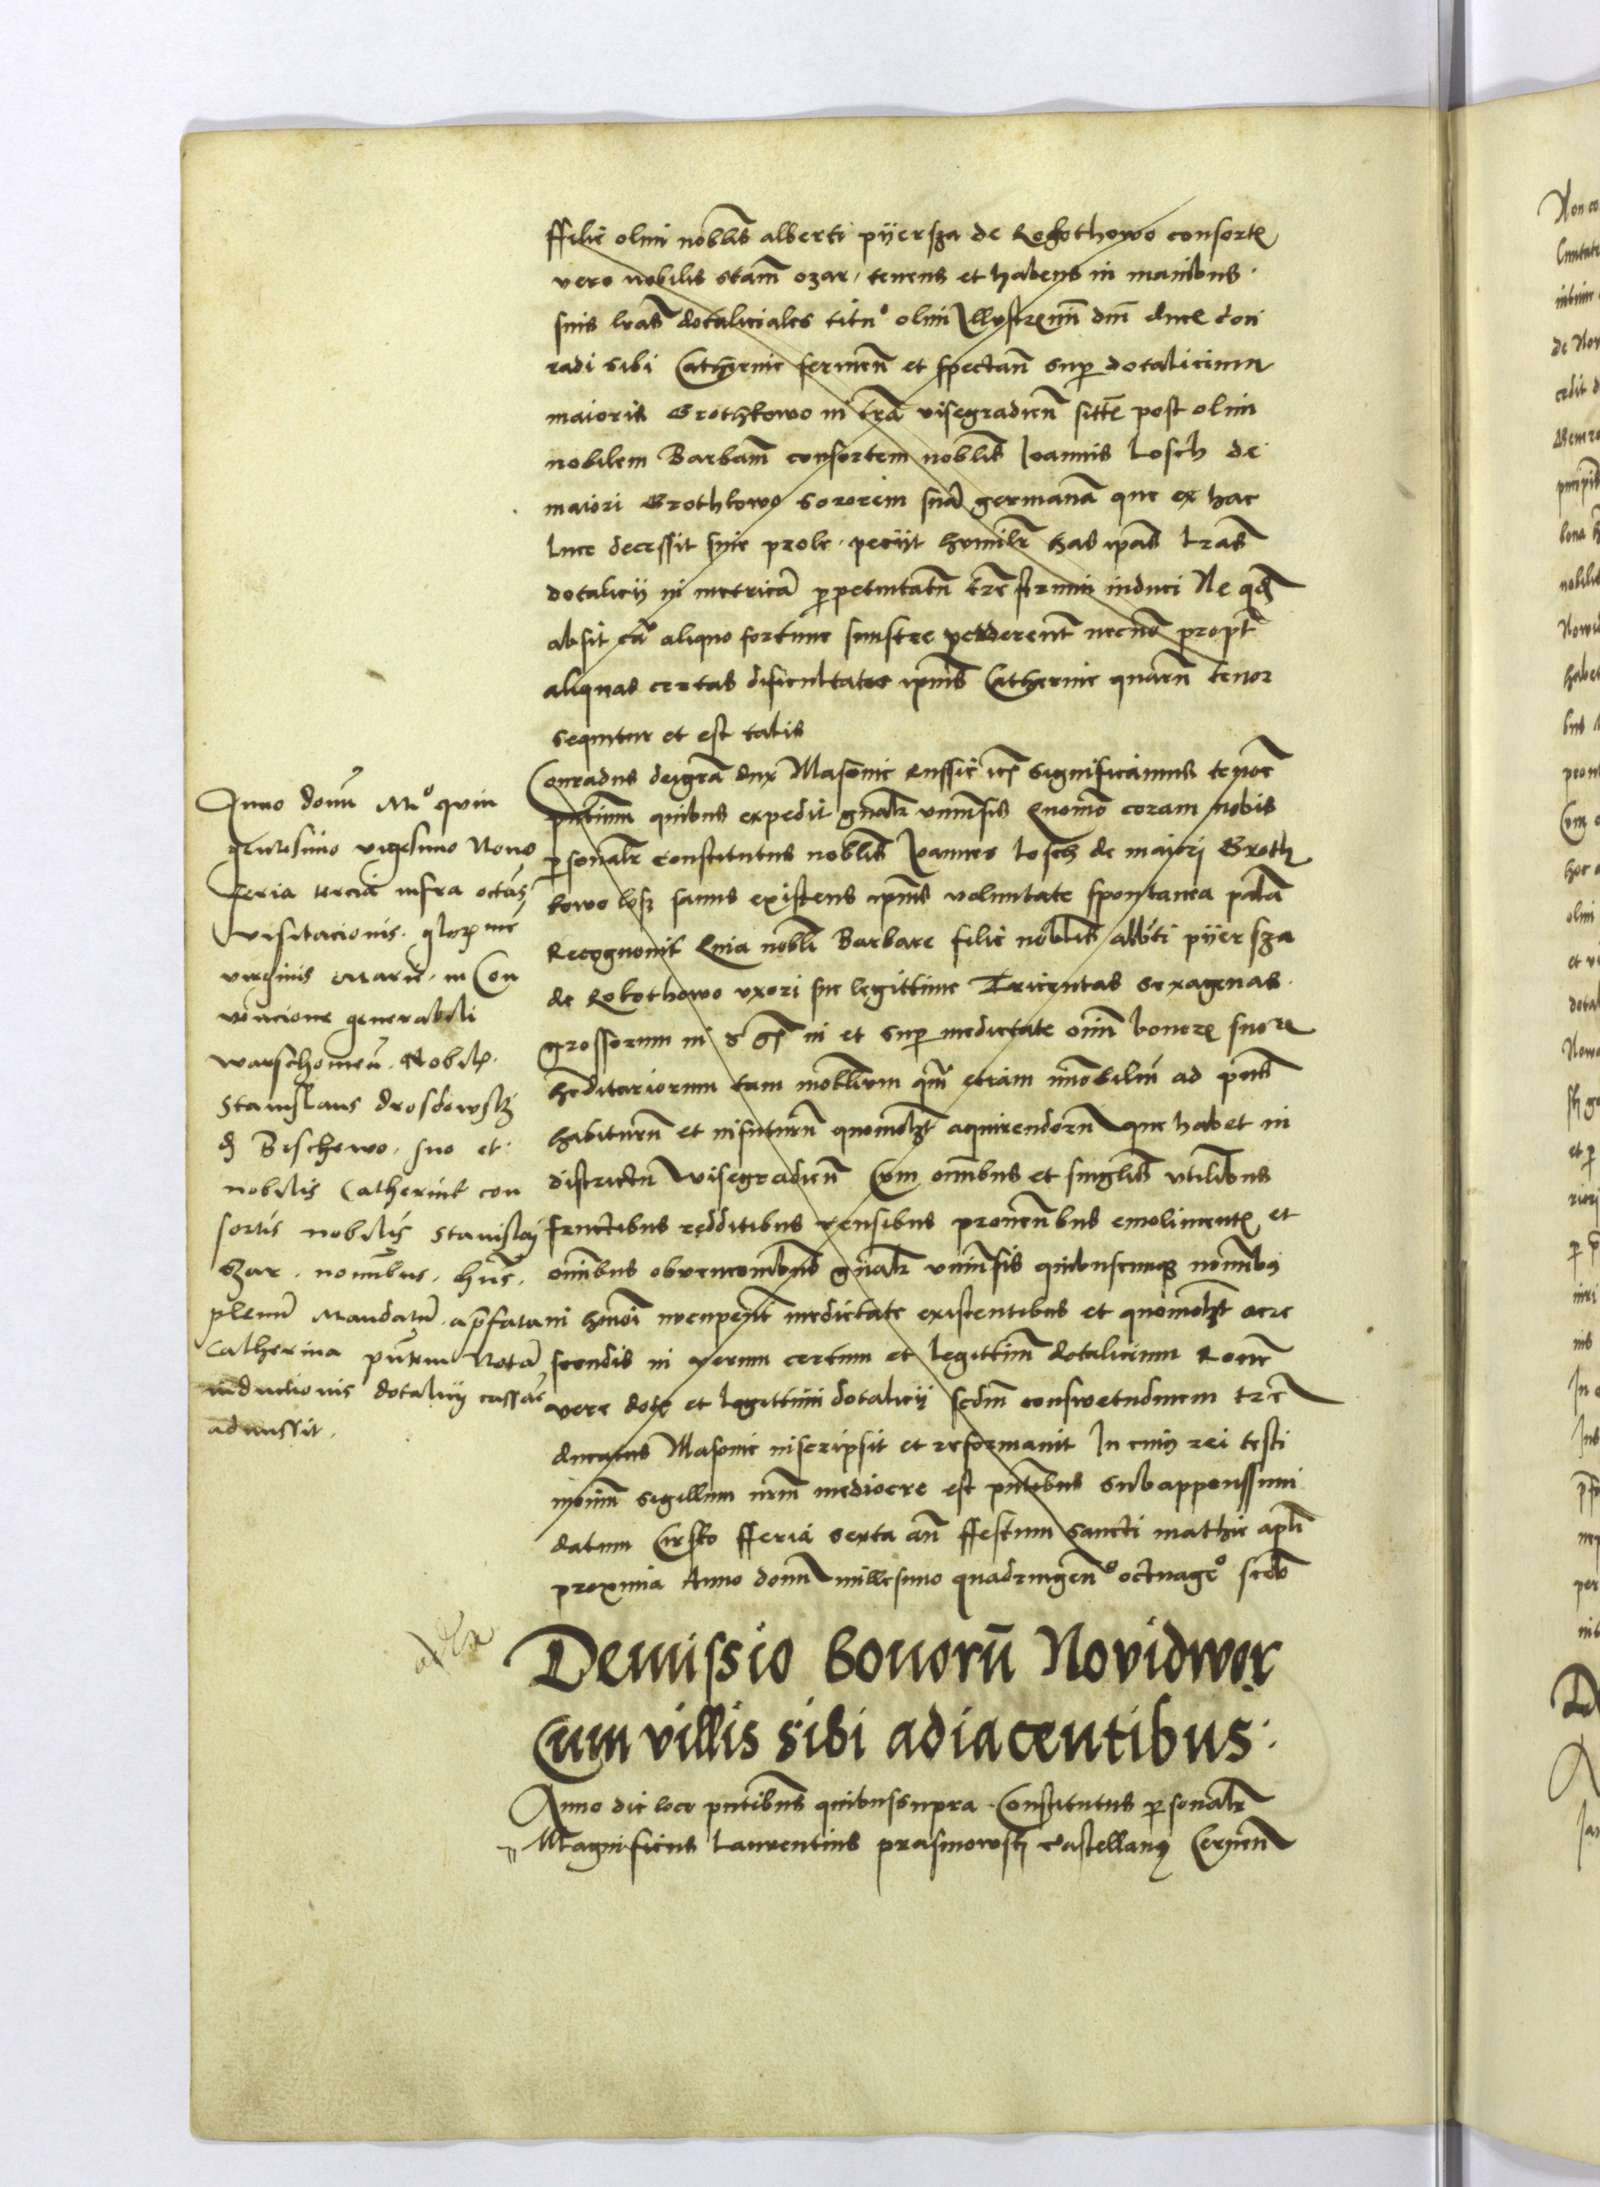 ffilie olim noblis alberti pyersza de Rokothowo consorte
vero nobilis stani ozar, tenens et habens in manibus
suis lras dotaliciales titu° olim Illustrem dni duce Con
radi sibi Catherine servien et spectan sup dotalicium
maioris Grothkowo in tra visegradien sitte post olim
nobilem Barbam consortem noblis Joannis Losch de
maiori Grothkowo sororem sua germana que ex hac
luce decessit sine prole. peciit humilr has ipas lras
dotalicy in metrica perpetuitatu tre induci Ne qd
absit aliquo fortune perderent necno propt
aliquas certas dificultates ipius Catherine quaru tenor
sequitur et est talis
Conradus dei gra dux Masovie Russie etc significamus tenore
pntium quibus expedit gnalr univsis Quomo coram nobis
personalr constitutus noblis Joannes Losch de maiori Groth
kowo sanus existens ipius voluntate spontanea pala
Recognovit Quia nobli Barbare filie noblis albti pyersza
de Rokothowo uxori sue legittime Tricentas sexagenas
grossorum in et sup medietate oim bonor suor
heditariorum tam mobilium qm etiam imobiliu ad pns
habituru et in futuru quomolzt aquirendoru que habet in
districtu Wisegradien Cum omibus et singlis utilibus
fructibus redditibus censibus provenbus emolimente et
omibus obvencombus gnalr univsis quibuscumqz nomibus
in hmoi medietate existentibus et quomolzt
scendis in verum certum et legittim dotalicium
vere dotis et legittimi dotalicy scdm conswetudinem tre
ducatus Masovie inscripsit et reformavit In cuius rei testi
monium sigillum nrm mediocre est pntibus subappenssum
datum Cirsko fferia sexta an ffestum Sancti mathie apli
proxima Anno domi millesimo quadringen° octuage° scdo
Anno domi M° quin
gentesimo vigesimo Nono
feria tercia infra octas
visitacionis glorime
virginis Marie in Con
vocione generali
warschovien Nobil
Stanislaus drosdowskj
d Bischewo, suo et
nobilis Catherine con
sortis nobilis Stanislaj
Ozar nomibus, hns
plenu Mandatu a pfata
Catherina pntem Nota
inductionis dotalicy cassare
admissit.
Demissio Bonoru Novidwor
Cum villis sibi adiacentibus:
Anno die loco pntibus quibussupra Constitutus personalr
Magnificus Laurentius prasmowskj Castellanus Cernen